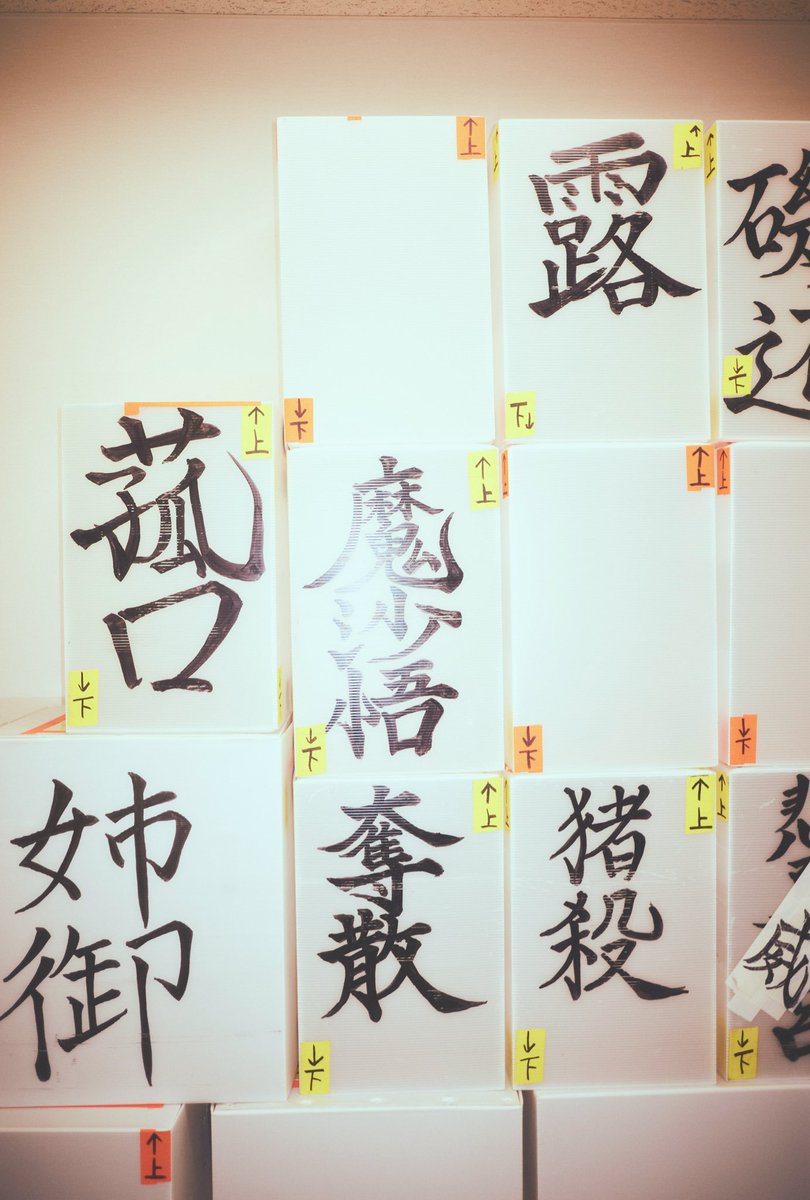 ↑上
↓下
↑上
露
下↓
↑上
↓下
↑上
菰口
↓下
↑上
魔沙悟
↓下
↑上
↓下
↑上
↓下
姉御
↑上
奪散
↓下
↑上
猪殺
↓下
↑上
↓下
↑上